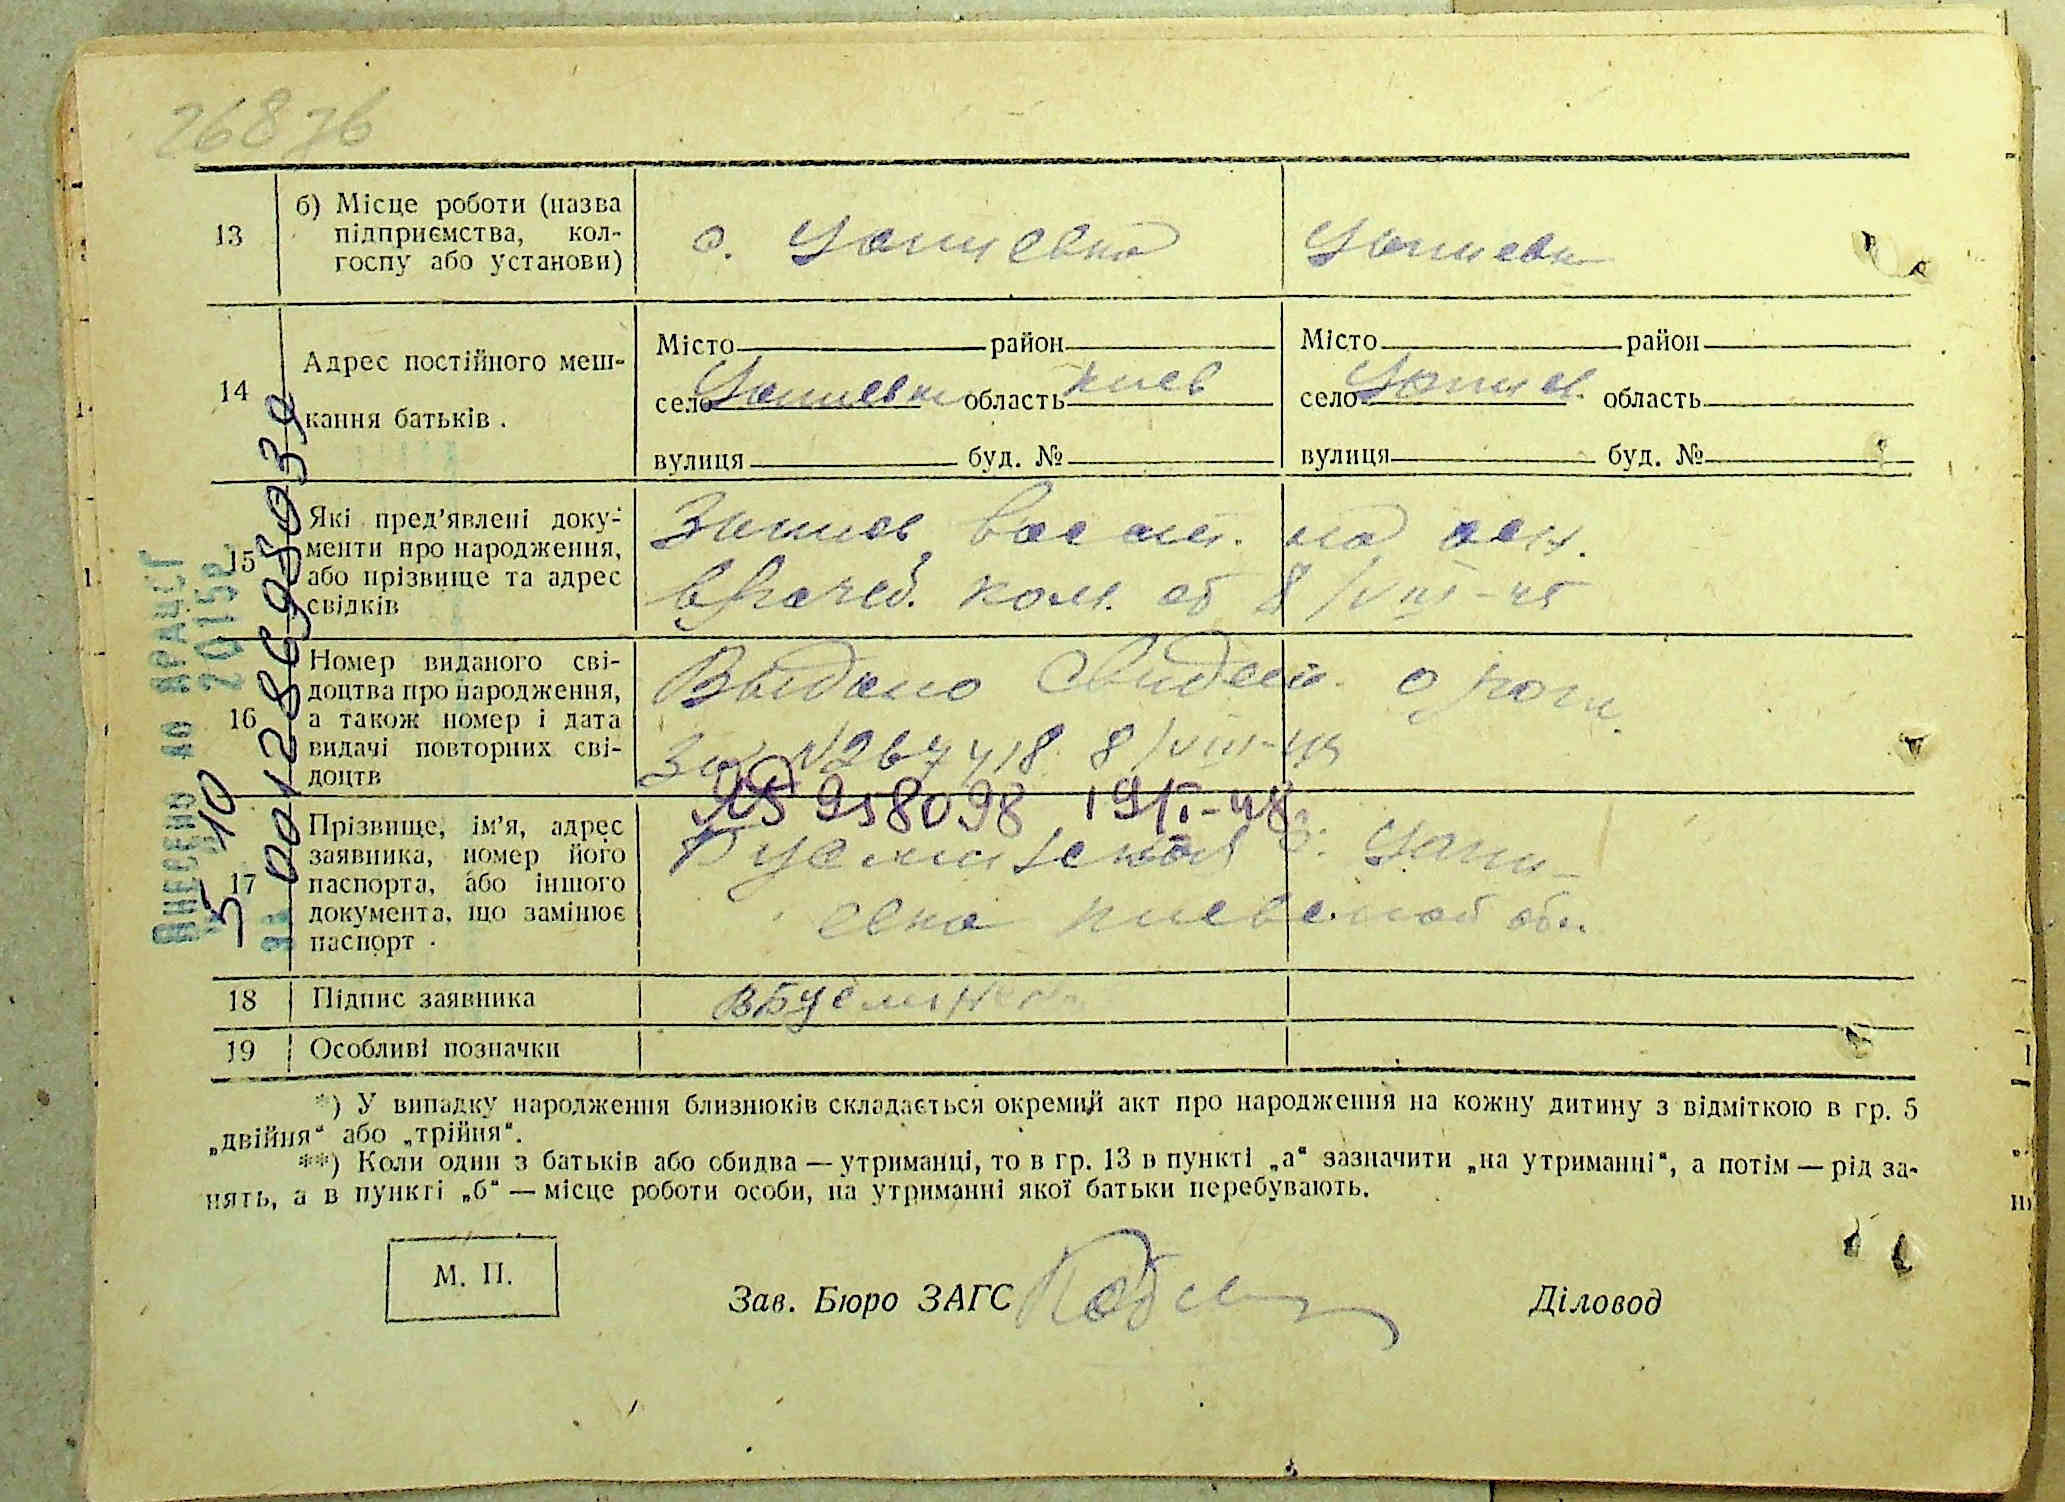 26876
13
б) Місце роботи (назва
підприємства, кол-
госпу або установи)
14
Адрес постійного меш-
кання батьків .
Місто район
село область Киев
вулиця буд. №
Місто район
село область
вулиця буд. №
15
Які пред'явлені доку-
менти про народження,
або прізвище та адрес
свідків
Запись восст. на осн.
врачеб. ком. от 8/VIII-45
16
Номер виданого сві-
доцтва про народження,
а також номер і дата
видачі повторних сві-
доцтв
Выдано Свидет. о рожд.
за № 8/VIII-45
958098 19/I-48
17
Прізвище, ім'я, адрес
заявника, номер його
паспорта, або іншого
документа, що замінює
паспорт .
киевской обл.
18
Підпис заявника
19
Особливі позначки
*) У випадку народження близнюків складається окремий акт про народження на кожну дитину з відміткою в гр. 5
„двійня“ або „трійня“.
**) Коли один з батьків або обидва — утриманці, то в гр. 13 в пункті „а“ зазначити „на утриманні“, а потім — рід за-
нять, а в пункті „б“ — місце роботи особи, на утриманні якої батьки перебувають.
М. П.
Зав. Бюро ЗАГС
Діловод
Внесено до ДРАЦСГ
5 10 2015р.
за 00128695039